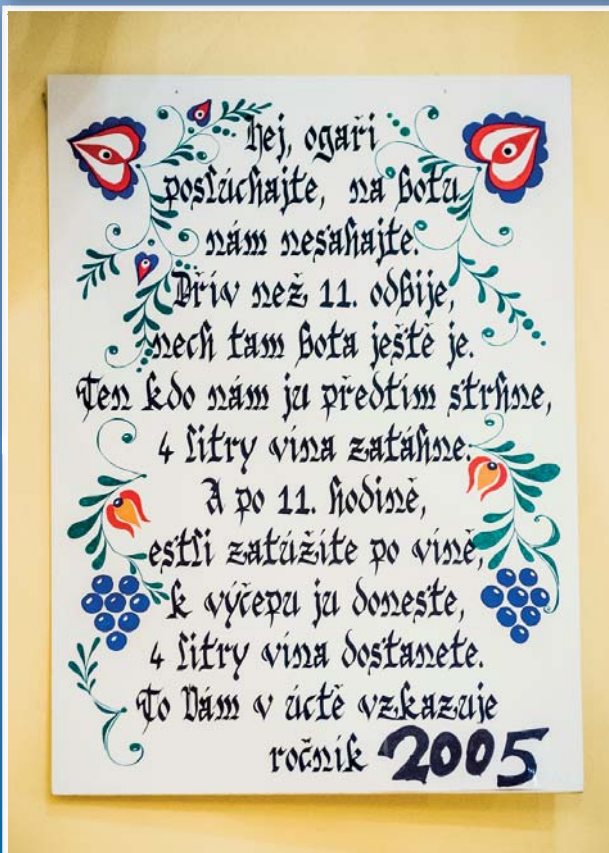 Hej, ogaři
poslúchajte, na botu
nám nesahajte.
Dřív než 11. odbije,
nech tam bota ještě je.
Ten kdo nám ju předtím strhne,
4 litry vína zatáhne.
A po 11. hodině,
estli zatúžíte po víně,
k výčepu ju doneste,
4 litry vína dostanete.
To Vám v úctě vzkazuje
ročník 2005